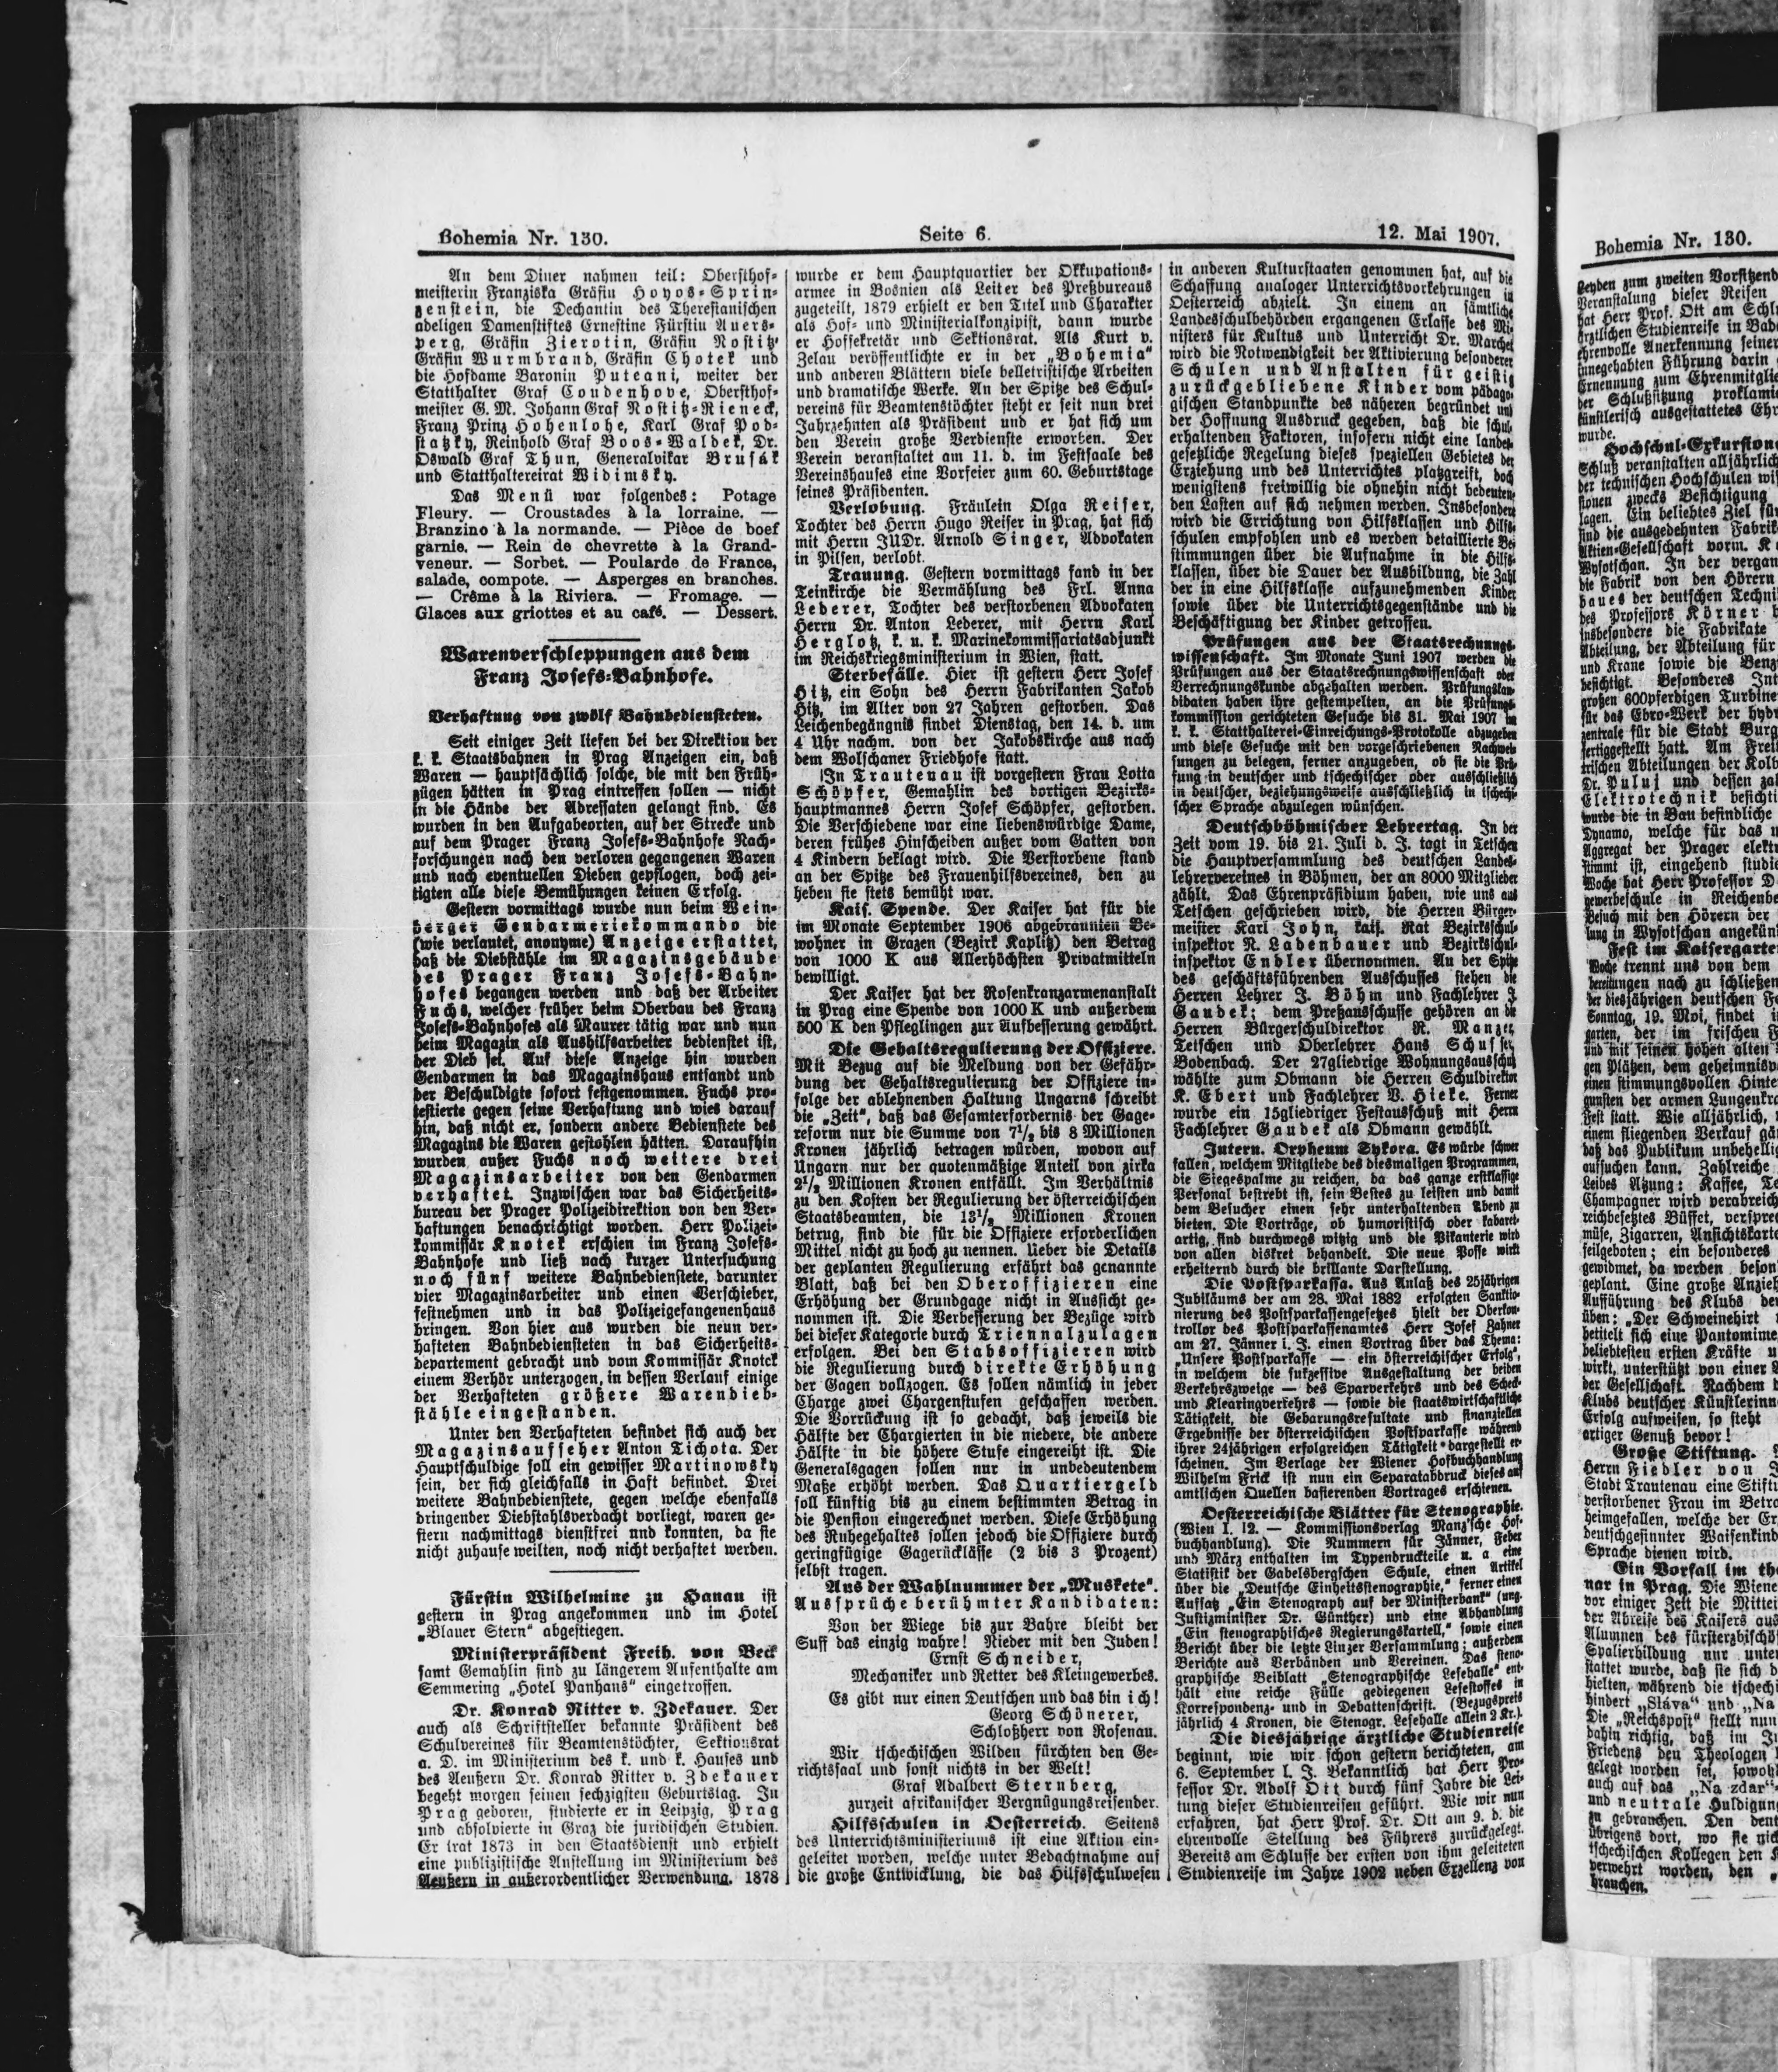 Bohemia Nr. 130.
Seite 6.
12. Mai 1907.
An dem Diner nahmen teil: Obersthof-
meisterin Franziska Gräfin Hoyos-Sprin-
zenstein, die Dechantin des Theresianischen
adeligen Damenstiftes Ernestine Fürstin Auers-
perg, Gräfin Zierotin, Gräfin Nostitz,
Gräfin Wurmbrand, Gräfin Chotek und
die Hofdame Baronin Puteani, weiter der
Statthalter Graf Coudenhove, Obersthof-
meister G. M. Johann Graf Nostitz-Rieneck,
Franz Prinz Hohenlohe, Karl Graf Pod-
statzky, Reinhold Graf Boos-Waldek, Dr.
Oswald Graf Thun, Generalvikar Brusák
und Statthaltereirat Widimsky.
Das Menü war folgendes: Potage
Fleury. — Croustades à la lorraine. —
Branzino à la normande. — Pièce de boef
garnie. — Rein de chevrette à la Grand-
veneur. — Sorbet. — Poularde de France,
salade, compote. — Asperges en branches.
— Crême à la Riviera. — Fromage. —
Glaces aux griottes et au café. — Dessert.
Warenverschleppungen aus dem
Franz Josefs-Bahnhofe.
Verhaftung von zwölf Bahnbediensteten.
Seit einiger Zeit liefen bei der Direktion der
k. k. Staatsbahnen in Prag Anzeigen ein, daß
Waren — hauptsächlich solche, die mit den Früh-
zügen hätten in Prag eintreffen sollen — nicht
in die Hände der Adressaten gelangt sind. Es
wurden in den Aufgabeorten, auf der Strecke und
auf dem Prager Franz Josefs-Bahnhofe Nach-
forschungen nach den verloren gegangenen Waren
und nach eventuellen Dieben gepflogen, doch zei-
tigten alle diese Bemühungen keinen Erfolg.
Gestern vormittags wurde nun beim Wein-
berger Gendarmeriekommando die
(wie verlautet, anonyme) Anzeige erstattet,
daß die Diebstähle im Magazinsgebäude
des Prager Franz Josefs-Bahn-
hofes begangen werden und daß der Arbeiter
Fuchs, welcher früher beim Oberbau des Franz
Josefs-Bahnhofes als Maurer tätig war und nun
beim Magazin als Aushilfsarbeiter bedienstet ist,
der Dieb sei. Auf diese Anzeige hin wurden
Gendarmen in das Magazinshaus entsandt und
der Beschuldigte sofort festgenommen. Fuchs pro-
testierte gegen seine Verhaftung und wies darauf
hin, daß nicht er, sondern andere Bedienstete des
Magazins die Waren gestohlen hätten. Daraufhin
wurden außer Fuchs noch weitere drei
Magazinsarbeiter von den Gendarmen
verhaftet. Inzwischen war das Sicherheits-
bureau der Prager Polizeidirektion von den Ver-
haftungen benachrichtigt worden. Herr Polizei-
kommissär Knotek erschien im Franz Josefs-
Bahnhofe und ließ nach kurzer Untersuchung
noch fünf weitere Bahnbedienstete, darunter
vier Magazinsarbeiter und einen Verschieber,
festnehmen und in das Polizeigefangenenhaus
bringen. Von hier aus wurden die neun ver-
hafteten Bahnbediensteten in das Sicherheits-
departement gebracht und vom Kommissär Knotek
einem Verhör unterzogen, in dessen Verlauf einige
der Verhafteten größere Warendieb-
stähle eingestanden.
Unter den Verhafteten befindet sich auch der
Magazinsaufseher Anton Tichota. Der
Hauptschuldige soll ein gewisser Martinowsky
sein, der sich gleichfalls in Haft befindet. Drei
weitere Bahnbedienstete, gegen welche ebenfalls
dringender Diebstahlsverdacht vorliegt, waren ge-
stern nachmittags dienstfrei und konnten, da sie
nicht zuhause weilten, noch nicht verhaftet werden.
Fürstin Wilhelmine zu Hanau ist
gestern in Prag angekommen und im Hotel
„Blauer Stern“ abgestiegen.
Ministerpräsident Freih. von Beck
samt Gemahlin sind zu längerem Aufenthalte am
Semmering „Hotel Panhans“ eingetroffen.
Dr. Konrad Ritter v. Zdekauer. Der
auch als Schriftsteller bekannte Präsident des
Schulvereines für Beamtenstöchter, Sektionsrat
a. D. im Ministerium des k. und k. Hauses und
des Aeußern Dr. Konrad Ritter v. Zdekauer
begeht morgen seinen sechzigsten Geburtstag. In
Prag geboren, studierte er in Leipzig, Prag
und absolvierte in Graz die juridischen Studien.
Er trat 1873 in den Staatsdienst und erhielt
eine publizistische Anstellung im Ministerium des
Aeußern in außerordentlicher Verwendung. 1878
wurde er dem Hauptquartier der Okkupations-
armee in Bosnien als Leiter des Preßbureaus
zugeteilt, 1879 erhielt er den Titel und Charakter
als Hof- und Ministerialkonzipist, dann wurde
er Hofsekretär und Sektionsrat. Als Kurt v.
Zelau veröffentlichte er in der „Bohemia“
und anderen Blättern viele belletristische Arbeiten
und dramatische Werke. An der Spitze des Schul-
vereins für Beamtenstöchter steht er seit nun drei
Jahrzehnten als Präsident und er hat sich um
den Verein große Verdienste erworben. Der
Verein veranstaltet am 11. d. im Festsaale des
Vereinshauses eine Vorfeier zum 60. Geburtstage
seines Präsidenten.
Verlobung. Fräulein Olga Reiser,
Tochter des Herrn Hugo Reiser in Prag, hat sich
mit Herrn JUDr. Arnold Singer, Advokaten
in Pilsen, verlobt.
Trauung. Gestern vormittags fand in der
Teinkirche die Vermählung des Frl. Anna
Lederer, Tochter des verstorbenen Advokaten
Herrn Dr. Anton Lederer, mit Herrn Karl
Herglotz, k. u. k. Marinekommissariatsadjunkt
im Reichskriegsministerium in Wien, statt.
Sterbefälle. Hier ist gestern Herr Josef
Hitz, ein Sohn des Herrn Fabrikanten Jakob
Hitz, im Alter von 27 Jahren gestorben. Das
Leichenbegängnis findet Dienstag, den 14. d. um
4 Uhr nachm. von der Jakobskirche aus nach
dem Wolschaner Friedhofe statt.
In Trautenau ist vorgestern Frau Lotta
Schöpfer, Gemahlin des dortigen Bezirks-
hauptmannes Herrn Josef Schöpfer, gestorben.
Die Verschiedene war eine liebenswürdige Dame,
deren frühes Hinscheiden außer vom Gatten von
4 Kindern beklagt wird. Die Verstorbene stand
an der Spitze des Frauenhilfsvereines, den zu
heben sie stets bemüht war.
Kais. Spende. Der Kaiser hat für die
im Monate September 1906 abgebrannten Be-
wohner in Grazen (Bezirk Kaplitz) den Betrag
von 1000 K aus Allerhöchsten Privatmitteln
bewilligt.
Der Kaiser hat der Rosenkranzarmenanstalt
in Prag eine Spende von 1000 K und außerdem
500 K den Pfleglingen zur Aufbesserung gewährt.
Die Gehaltsregulierung der Offiziere.
Mit Bezug auf die Meldung von der Gefähr-
dung der Gehaltsregulierung der Offiziere in-
folge der ablehnenden Haltung Ungarns schreibt
die „Zeit“, daß das Gesamterfordernis der Gage-
reform nur die Summe von 7½ bis 8 Millionen
Kronen jährlich betragen würden, wovon auf
Ungarn nur der quotenmäßige Anteil von zirka
2½ Millionen Kronen entfällt. Im Verhältnis
zu den Kosten der Regulierung der österreichischen
Staatsbeamten, die 13½ Millionen Kronen
betrug, sind die für die Offiziere erforderlichen
Mittel nicht zu hoch zu nennen. Ueber die Details
der geplanten Regulierung erfährt das genannte
Blatt, daß bei den Oberoffizieren eine
Erhöhung der Grundgage nicht in Aussicht ge-
nommen ist. Die Verbesserung der Bezüge wird
bei dieser Kategorie durch Triennalzulagen
erfolgen. Bei den Stabsoffizieren wird
die Regulierung durch direkte Erhöhung
der Gagen vollzogen. Es sollen nämlich in jeder
Charge zwei Chargenstufen geschaffen werden.
Die Vorrückung ist so gedacht, daß jeweils die
Hälfte der Chargierten in die niedere, die andere
Hälfte in die höhere Stufe eingereiht ist. Die
Generalsgagen sollen nur in unbedeutendem
Maße erhöht werden. Das Quartiergeld
soll künftig bis zu einem bestimmten Betrag in
die Pension eingerechnet werden. Diese Erhöhung
des Ruhegehaltes sollen jedoch die Offiziere durch
geringfügige Gagerücklässe (2 bis 3 Prozent)
selbst tragen.
Aus der Wahlnummer der „Muskete“.
Aussprüche berühmter Kandidaten:
Von der Wiege bis zur Bahre bleibt der
Suff das einzig wahre! Nieder mit den Juden!
Ernst Schneider,
Mechaniker und Retter des Kleingewerbes.
Es gibt nur einen Deutschen und das bin ich!
Georg Schönerer,
Schloßherr von Rosenau.
Wir tschechischen Wilden fürchten den Ge-
richtssaal und sonst nichts in der Welt!
Graf Adalbert Sternberg,
zurzeit afrikanischer Vergnügungsreisender.
Hilfsschulen in Oesterreich. Seitens
des Unterrichtsministeriums ist eine Aktion ein-
geleitet worden, welche unter Bedachtnahme auf
die große Entwicklung, die das Hilfsschulwesen
in anderen Kulturstaaten genommen hat, auf die
Schaffung analoger Unterrichtsvorkehrungen in
Oesterreich abzielt. In einem an sämtliche
Landesschulbehörden ergangenen Erlasse des Mi-
nisters für Kultus und Unterricht Dr. Marchet
wird die Notwendigkeit der Aktivierung besonderer
Schulen und Anstalten für geistig
zurückgebliebene Kinder vom pädago-
gischen Standpunkte des näheren begründet und
der Hoffnung Ausdruck gegeben, daß die schul-
erhaltenden Faktoren, insofern nicht eine landes-
gesetzliche Regelung dieses speziellen Gebietes der
Erziehung und des Unterrichtes platzgreift, doch
wenigstens freiwillig die ohnehin nicht bedeuten-
den Lasten auf sich nehmen werden. Insbesondere
wird die Errichtung von Hilfsklassen und Hilfs-
schulen empfohlen und es werden detaillierte Be-
stimmungen über die Aufnahme in die Hilfs-
klassen, über die Dauer der Ausbildung, die Zahl
der in eine Hilfsklasse aufzunehmenden Kinder
sowie über die Unterrichtsgegenstände und die
Beschäftigung der Kinder getroffen.
Prüfungen aus der Staatsrechnungs-
wissenschaft. Im Monate Juni 1907 werden die
Prüfungen aus der Staatsrechnungswissenschaft oder
Verrechnungskunde abgehalten werden. Prüfungskan-
didaten haben ihre gestempelten, an die Prüfungs-
kommission gerichteten Gesuche bis 31. Mai 1907 im
k. k. Statthalterei-Einreichungs-Protokolle abzugeben
und diese Gesuche mit den vorgeschriebenen Nachwei-
sungen zu belegen, ferner anzugeben, ob sie die Prü-
fung in deutscher und tschechischer oder ausschließlich
in deutscher, beziehungsweise ausschließlich in tschechi-
scher Sprache abzulegen wünschen.
Deutschböhmischer Lehrertag. In der
Zeit vom 19. bis 21. Juli d. J. tagt in Tetschen
die Hauptversammlung des deutschen Landes-
lehrervereines in Böhmen, der an 8000 Mitglieder
zählt. Das Ehrenpräsidium haben, wie uns aus
Tetschen geschrieben wird, die Herren Bürger-
meister Karl John, kais. Rat Bezirksschul-
inspektor R. Ladenbauer und Bezirksschul-
inspektor Endler übernommen. An der Spitze
des geschäftsführenden Ausschusses stehen die
Herren Lehrer J. Böhm und Fachlehrer J.
Gaudek; dem Preßausschusse gehören an die
Herren Bürgerschuldirektor R. Manzer,
Tetschen und Oberlehrer Hans Schusser,
Bodenbach. Der 27gliedrige Wohnungsausschuß
wählte zum Obmann die Herren Schuldirektor
K. Ebert und Fachlehrer V. Hieke. Ferner
wurde ein 15gliedriger Festausschuß mit Herrn
Fachlehrer Gaudek als Obmann gewählt.
Intern. Orpheum Sykora. Es würde schwer
fallen, welchem Mitgliede des diesmaligen Programmen,
die Siegespalme zu reichen, da das ganze erstklassige
Personal bestrebt ist, sein Bestes zu leisten und damit
dem Besucher einen sehr unterhaltenden Abend zu
bieten. Die Vorträge, ob humoristisch oder kabaret-
artig, sind durchwegs witzig und die Pikanterie wird
von allen diskret behandelt. Die neue Posse wirkt
erheiternd durch die brillante Darstellung.
Die Postsparkassa. Aus Anlaß des 25jährigen
Jubiläums der am 28. Mai 1882 erfolgten Sanktio-
nierung des Postsparkassengesetzes hielt der Oberkon-
trollor des Postsparkassenamtes Herr Josef Zahner
am 27. Jänner i. J. einen Vortrag über das Thema:
„Unsere Postsparkasse — ein österreichischer Erfolg“,
in welchem die sukzessive Ausgestaltung der beiden
Verkehrszweige — des Sparverkehrs und des Scheck-
und Klearingverkehrs — sowie die staatswirtschaftliche
Tätigkeit, die Gebarungsresultate und finanziellen
Ergebnisse der österreichischen Postsparkasse während
ihrer 24jährigen erfolgreichen Tätigkeit dargestellt er-
scheinen. Im Verlage der Wiener Hofbuchhandlung
Wilhelm Frick ist nun ein Separatabdruck dieses auf
amtlichen Quellen basierenden Vortrages erschienen.
Oesterreichische Blätter für Stenographie.
(Wien I. 12. — Kommissionsverlag Manz'sche Hof-
buchhandlung). Die Nummern für Jänner, Feber
und März enthalten im Typendruckteile u. a eine
Statistik der Gabelsbergschen Schule, einen Artikel
über die „Deutsche Einheitsstenographie,“ ferner einen
Aufsatz „Ein Stenograph auf der Ministerbank“ (ung.
Justizminister Dr. Günther) und eine Abhandlung
„Ein stenographisches Regierungskartell,“ sowie einen
Bericht über die letzte Linzer Versammlung; außerdem
Berichte aus Verbänden und Vereinen. Das steno-
graphische Beiblatt „Stenographische Lesehalle“ ent-
hält eine reiche Fülle gediegenen Lesestoffes in
Korrespondenz- und in Debattenschrift. (Bezugspreis
jährlich 4 Kronen, die Stenogr. Lesehalle allein 2 Kr.).
Die diesjährige ärztliche Studienreise
beginnt, wie wir schon gestern berichteten, am
6. September l. J. Bekanntlich hat Herr Pro-
fessor Dr. Adolf Ott durch fünf Jahre die Lei-
tung dieser Studienreisen geführt. Wie wir nun
erfahren, hat Herr Prof. Dr. Ott am 9. d. die
ehrenvolle Stellung des Führers zurückgelegt.
Bereits am Schlusse der ersten von ihm geleiteten
Studienreise im Jahre 1902 neben Exzellenz von
Bohemia Nr. 130.
Leyden zum zweiten Vorsitzend
Veranstalung dieser Reisen
hat Herr Prof. Ott am Schl
ärztlichen Studienreise in Bad
ehrenvolle Anerkennung seiner
innegehabten Führung darin
Ernennung zum Ehrenmitglie
der Schlußsitzung proklami
künstlerisch ausgestattetes Ehr
wurde.
Hochschul-Exkursion
Schluß veranstalten alljährlich
der technischen Hochschulen wis
sionen zwecks Besichtigung
lagen. Ein beliebtes Ziel für
sind die ausgedehnten Fabrik
Aktien-Gesellschaft vorm. K
Wysotschan. In der vergan
die Fabrik von den Hörern
baues der deutschen Techni
des Professors Körner
insbesondere die Fabrikate
Abteilung, der Abteilung für
und Krane sowie die Benz
besichtigt. Besonderes Int
großen 600pferdigen Turbine
für das Ebro-Werk der hydr
zentrale für die Stadt Burg
fertiggestellt hatt. Am Frei
trischen Abteilungen der Kolb
Dr. Puluj und dessen zal
Elektrotechnik besichti
wurde die in Bau befindliche
Dynamo, welche für das n
Aggregat der Prager elektr
stimmt ist, eingehend studie
Woche hat Herr Professor D
gewerbeschule in Reichenbe
Besuch mit den Hörern der
lung in Wysotschan angekün
Fest im Kaisergarte
Woche trennt uns von dem
bereitungen nach zu schließen
der diesjährigen deutschen F
Sonntag, 19. Mai, findet i
garten, der im frischen F
und mit seinen hohen alten
gen Plätzen, dem geheimnisv
einen stimmungsvollen Hinte
gunsten der armen Lungenkra
Fest statt. Wie alljährlich,
einem fliegenden Verkauf gä
daß das Publikum unbehellig
aufsuchen kann. Zahlreiche
Leibes Atzung: Kaffee, Te
Champagner wird verabreich
reichbesetztes Büffet, verspre
müse, Zigarren, Ansichtskarte
feilgeboten; ein besonderes
gewidmet, da werden beson
geplant. Eine große Anzieh
Aufführung des Klubs de
üben: „Der Schweinehirt
betitelt sich eine Pantomime,
beliebtesten ersten Kräfte u
wirkt, unterstützt von einer
der Gesellschaft. Nachdem
Klubs deutscher Künstlerinn
Erfolg aufweisen, so steht
artiger Genuß bevor!
Große Stiftung.
Herrn Fiedler von
Stadt Trautenau eine Stiftu
verstorbener Frau im Betra
heimgefallen, welche der Er
deutschgesinnter Waisenkind
Sprache dienen wird.
Ein Vorfall im th
nar in Prag. Die Wiene
vor einiger Zeit die Mittei
der Abreise des Kaisers aus
Alumnen des fürsterzbischö
Spalierbildung nur unte
stattet wurde, daß sie sich d
hielten, während die tschechi
hindert „Sláva“ und „Na
Die „Reichspost“ stellt nun
dahin richtig, daß im
Friedens den Theologen
gelegt worden sei, sowohl
auch auf das „Na zdar“-
und neutrale Huldigun
zu gebrauchen. Den deut
übrigens dort, wo sie nic
tschechischen Kollegen den
verwehrt worden, den
brauchen.